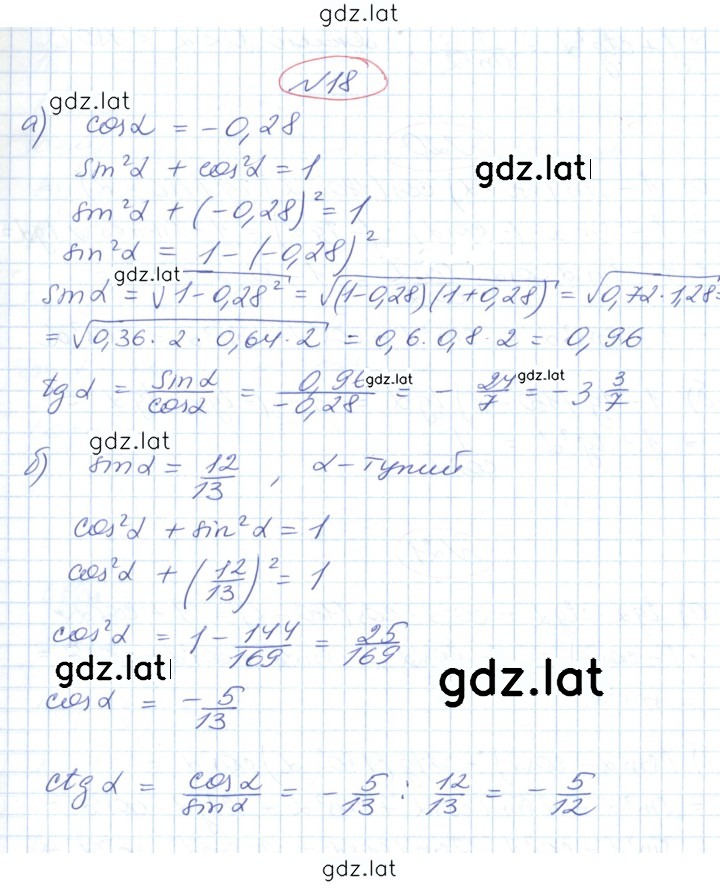 gdz.lat
№18
gdz.lat
а) cosα = -0,28
sin²α + cos²α = 1
gdz.lat
sin²α + (-0,28)² = 1
sin²α = 1 - (-0,28)²
gdz.lat
sinα = √(1-0,28²) = √((1-0,28)(1+0,28)) = √(0,72·1,28) =
= √(0,36·2·0,64·2) = 0,6·0,8·2 = 0,96
tgα = sinα/cosα = 0,96/-0,28 = -24/7 = -3 3/7
gdz.lat
gdz.lat
gdz.lat
б) sinα = 12/13, α - тупий
cos²α + sin²α = 1
cos²α + (12/13)² = 1
cos²α = 1 - 144/169 = 25/169
gdz.lat
gdz.lat
cosα = -5/13
ctgα = cosα/sinα = -5/13 : 12/13 = -5/12
gdz.lat